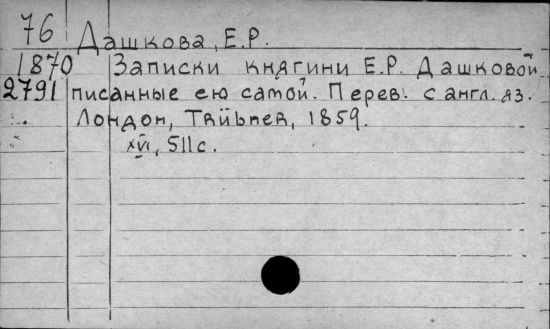 76 Дашкова, Е.Р.
1870 Записки княгини Е.Р. Дашковой
2791 писанные ею самой. Перев. с англ. яз.
Лондон, Трüвпев, 1859.
xvi, 511 с.